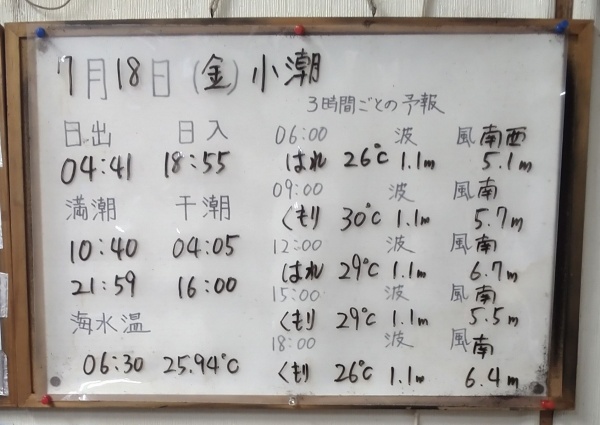 7月18日(金)小潮
日出 日入
04:41 18:55
満潮 干潮
10:40 04:05
21:59 16:00
海水温
06:30 25.94℃
3時間ごとの予報
06:00 波 風南西
はれ 26℃ 1.1m 5.1m
09:00 波 風南
くもり 30℃ 1.1m 5.7m
12:00 波 風南
はれ 29℃ 1.1m 6.7m
15:00 波 風南
くもり 29℃ 1.1m 5.5m
18:00 波 風南
くもり 26℃ 1.1m 6.4m